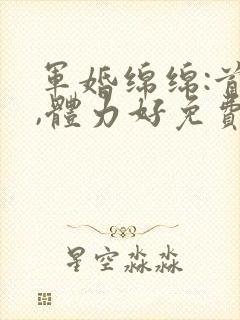 軍婚綿綿:首
,體力好免費
星空淼淼